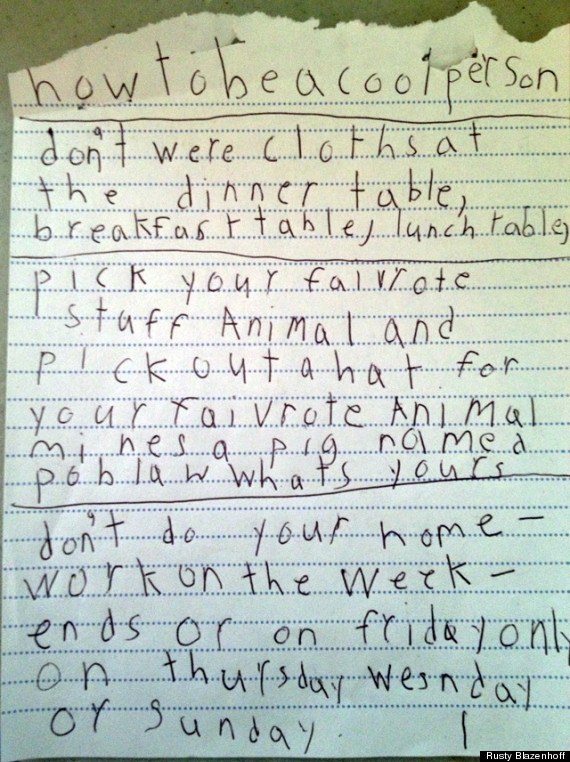 how to be a cool person
don't were cloths at
the dinner table,
breakfast table, lunch table,
pick your faivrote
stuff Animal and
pick out a hat for
your faivrote Animal
mines a pig named
poblaw whats yours
don't do your home-
work on the week-
ends or on friday only
on thursday wesnday
or sunday. 1
Rusty Blazenhoff